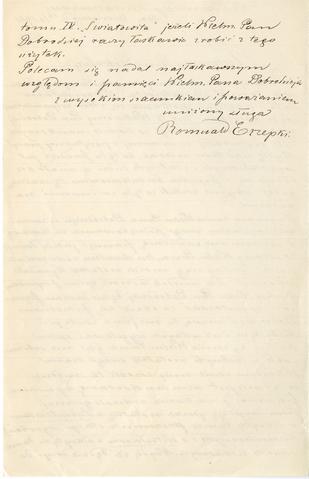 tomu IV. "Światowita" jeżeli Wielm. Pan
Dobrodziej raczy łaskawie zrobić z tego
użytek.
Polecam się nadal najłaskawszym
względom i pamięci Wielm. Pana Dobrodzieja
z wysokim szacunkiem i poważaniem
uniżony sługa
Romuald Erzepki